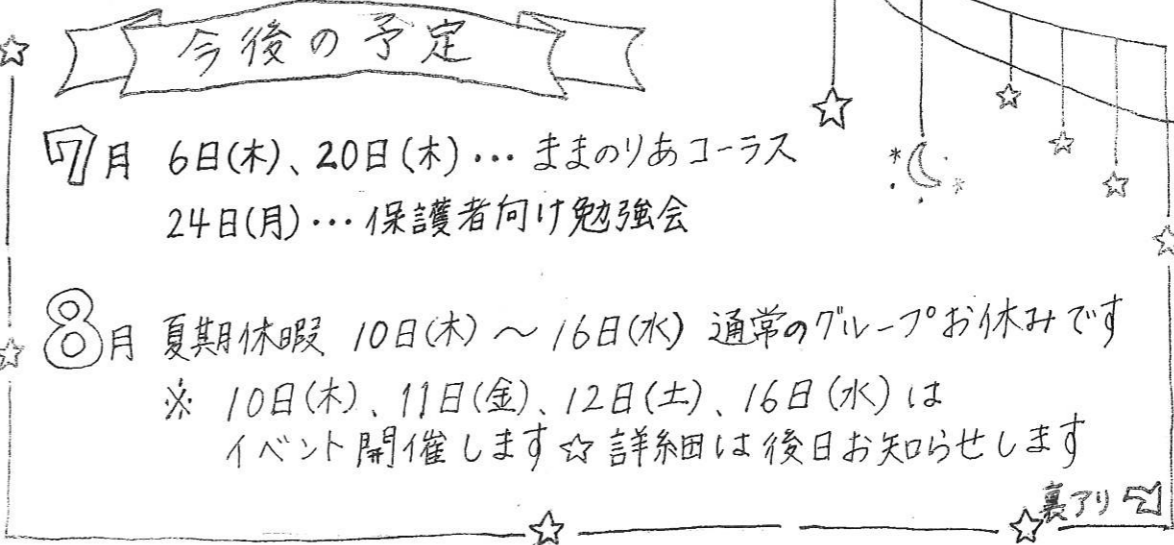 今後の予定
7月 6日(木)、20日(木)…ままのりあコーラス
24日(月)…保護者向け勉強会
8月 夏期休暇 10日(木)～16日(水) 通常のグループお休みです
※ 10日(木)、11日(金)、12日(土)、16日(水)は
イベント開催します☆詳細は後日お知らせします
裏アリ